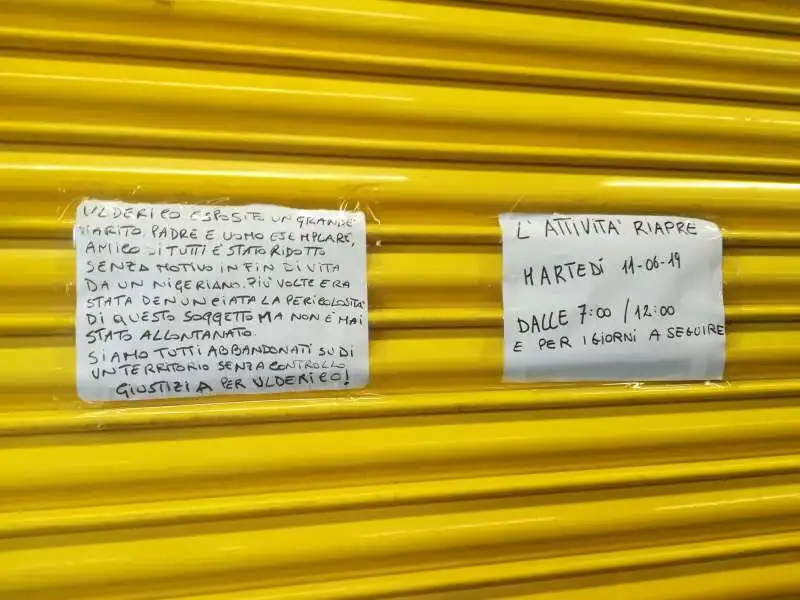 ULDERICO ESPOSITO UN GRANDE
MARITO, PADRE E UOMO ESEMPLARE,
AMICO DI TUTTI È STATO RIDOTTO
SENZA MOTIVO IN FIN DI VITA
DA UN NIGERIANO. PIÙ VOLTE ERA
STATA DENUNCIATA LA PERICOLOSITÀ
DI QUESTO SOGGETTO MA NON È MAI
STATO ALLONTANATO.
SIAMO TUTTI ABBANDONATI SU DI
UN TERRITORIO SENZA CONTROLLO
GIUSTIZIA PER ULDERICO!
L'ATTIVITA' RIAPRE
MARTEDÌ 11-06-19
DALLE 7:00 / 12:00
E PER I GIORNI A SEGUIRE